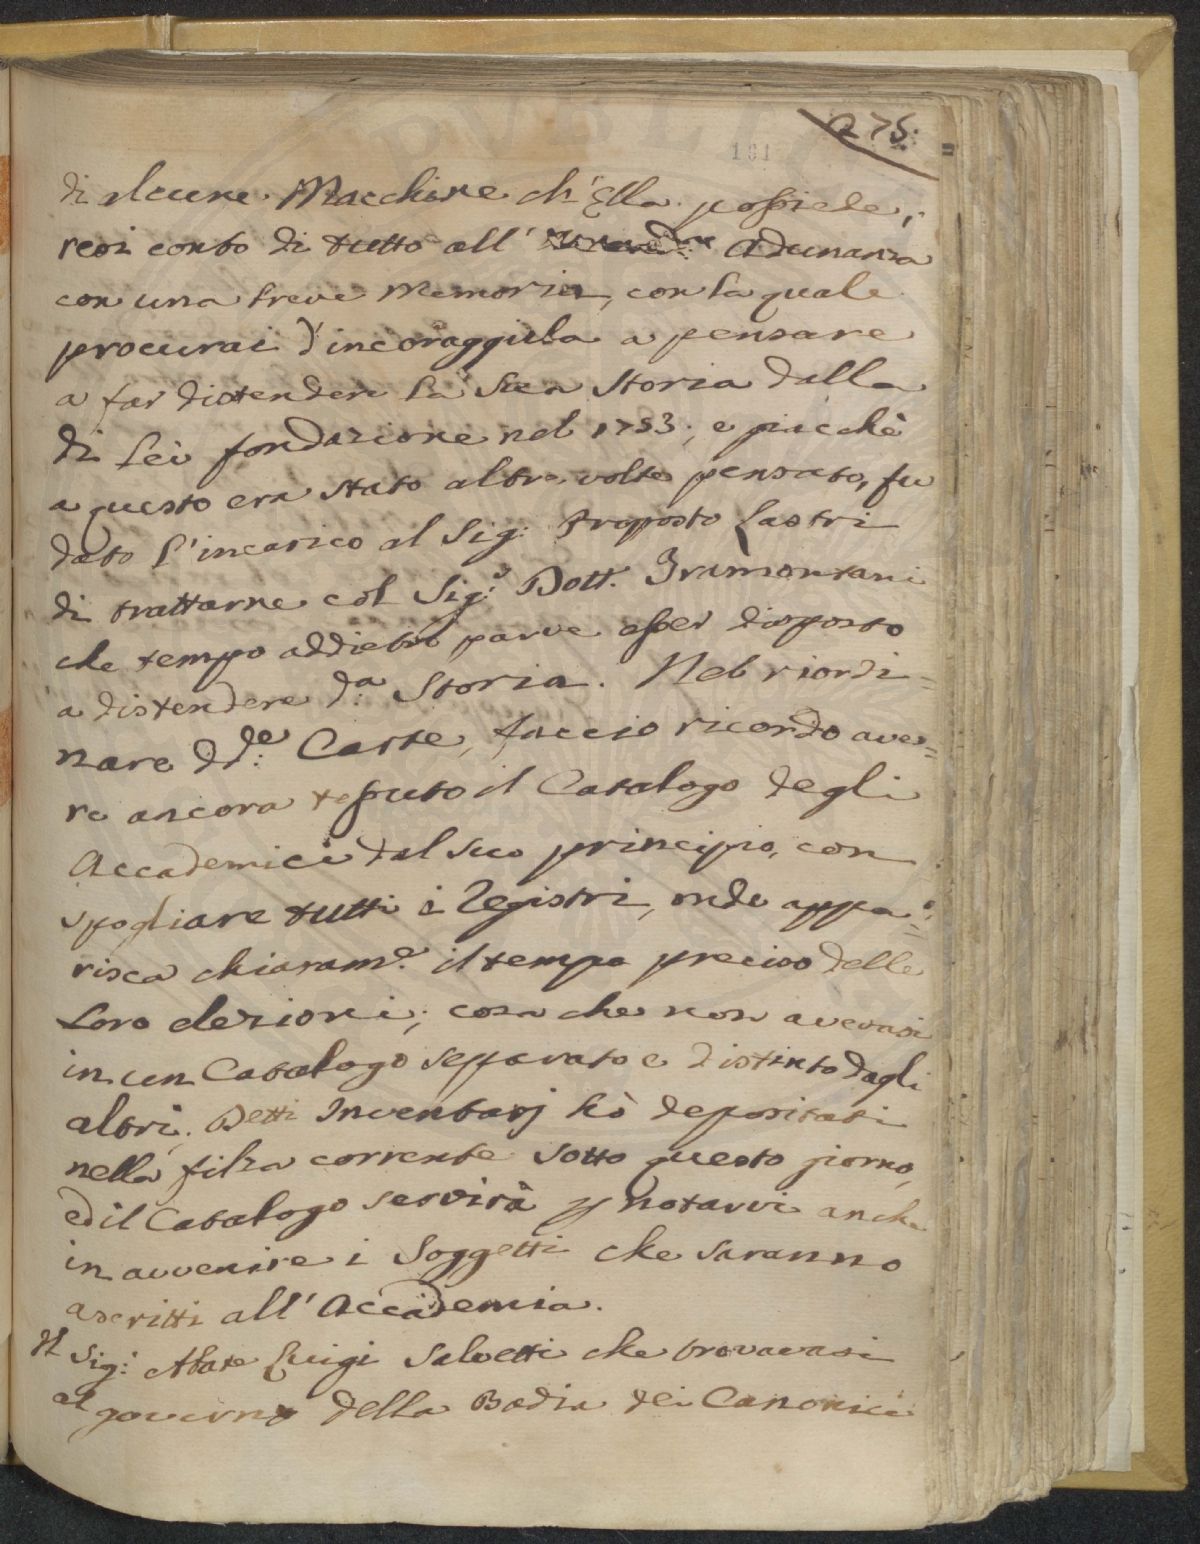 275.
191
di alcune Macchine ch'Ella possiede,
resi conto di tutto all' Adunanza
con una breve Memoria, con la quale
procurai d'incoraggirla a pensare
a far distendere la sua Storia dalla
di Lei fondazione nel 1753; e giacchè
a questo era stato altre volte pensato, fu
dato l'incarico al Sig: Proposto Lastri
di trattarne col Sig.e Dott. Tramontani
che tempo addietro parve esser disposto
a distendere d.a Storia. Nel riordi=
nare dd.e Carte, faccio ricordo ave=
re ancora tessuto il Catalogo degli
Accademici dal suo principio, con
spogliare tutti i Registri, onde appa=
risca chiaram.e il tempo preciso delle
Loro elezioni; cosa che non avevasi
in un Catalogo separato e distinto dagli
altri. Detti Inventarj hò depositati
nella filza corrente sotto questo giorno,
ed il Catalogo servirà p notarvi anche
in avvenire i Soggetti che saranno
ascritti all'Accademia.
Il Sig: Abate Luigi Salvetti che trovavasi
al governo della Badia dei Canonici